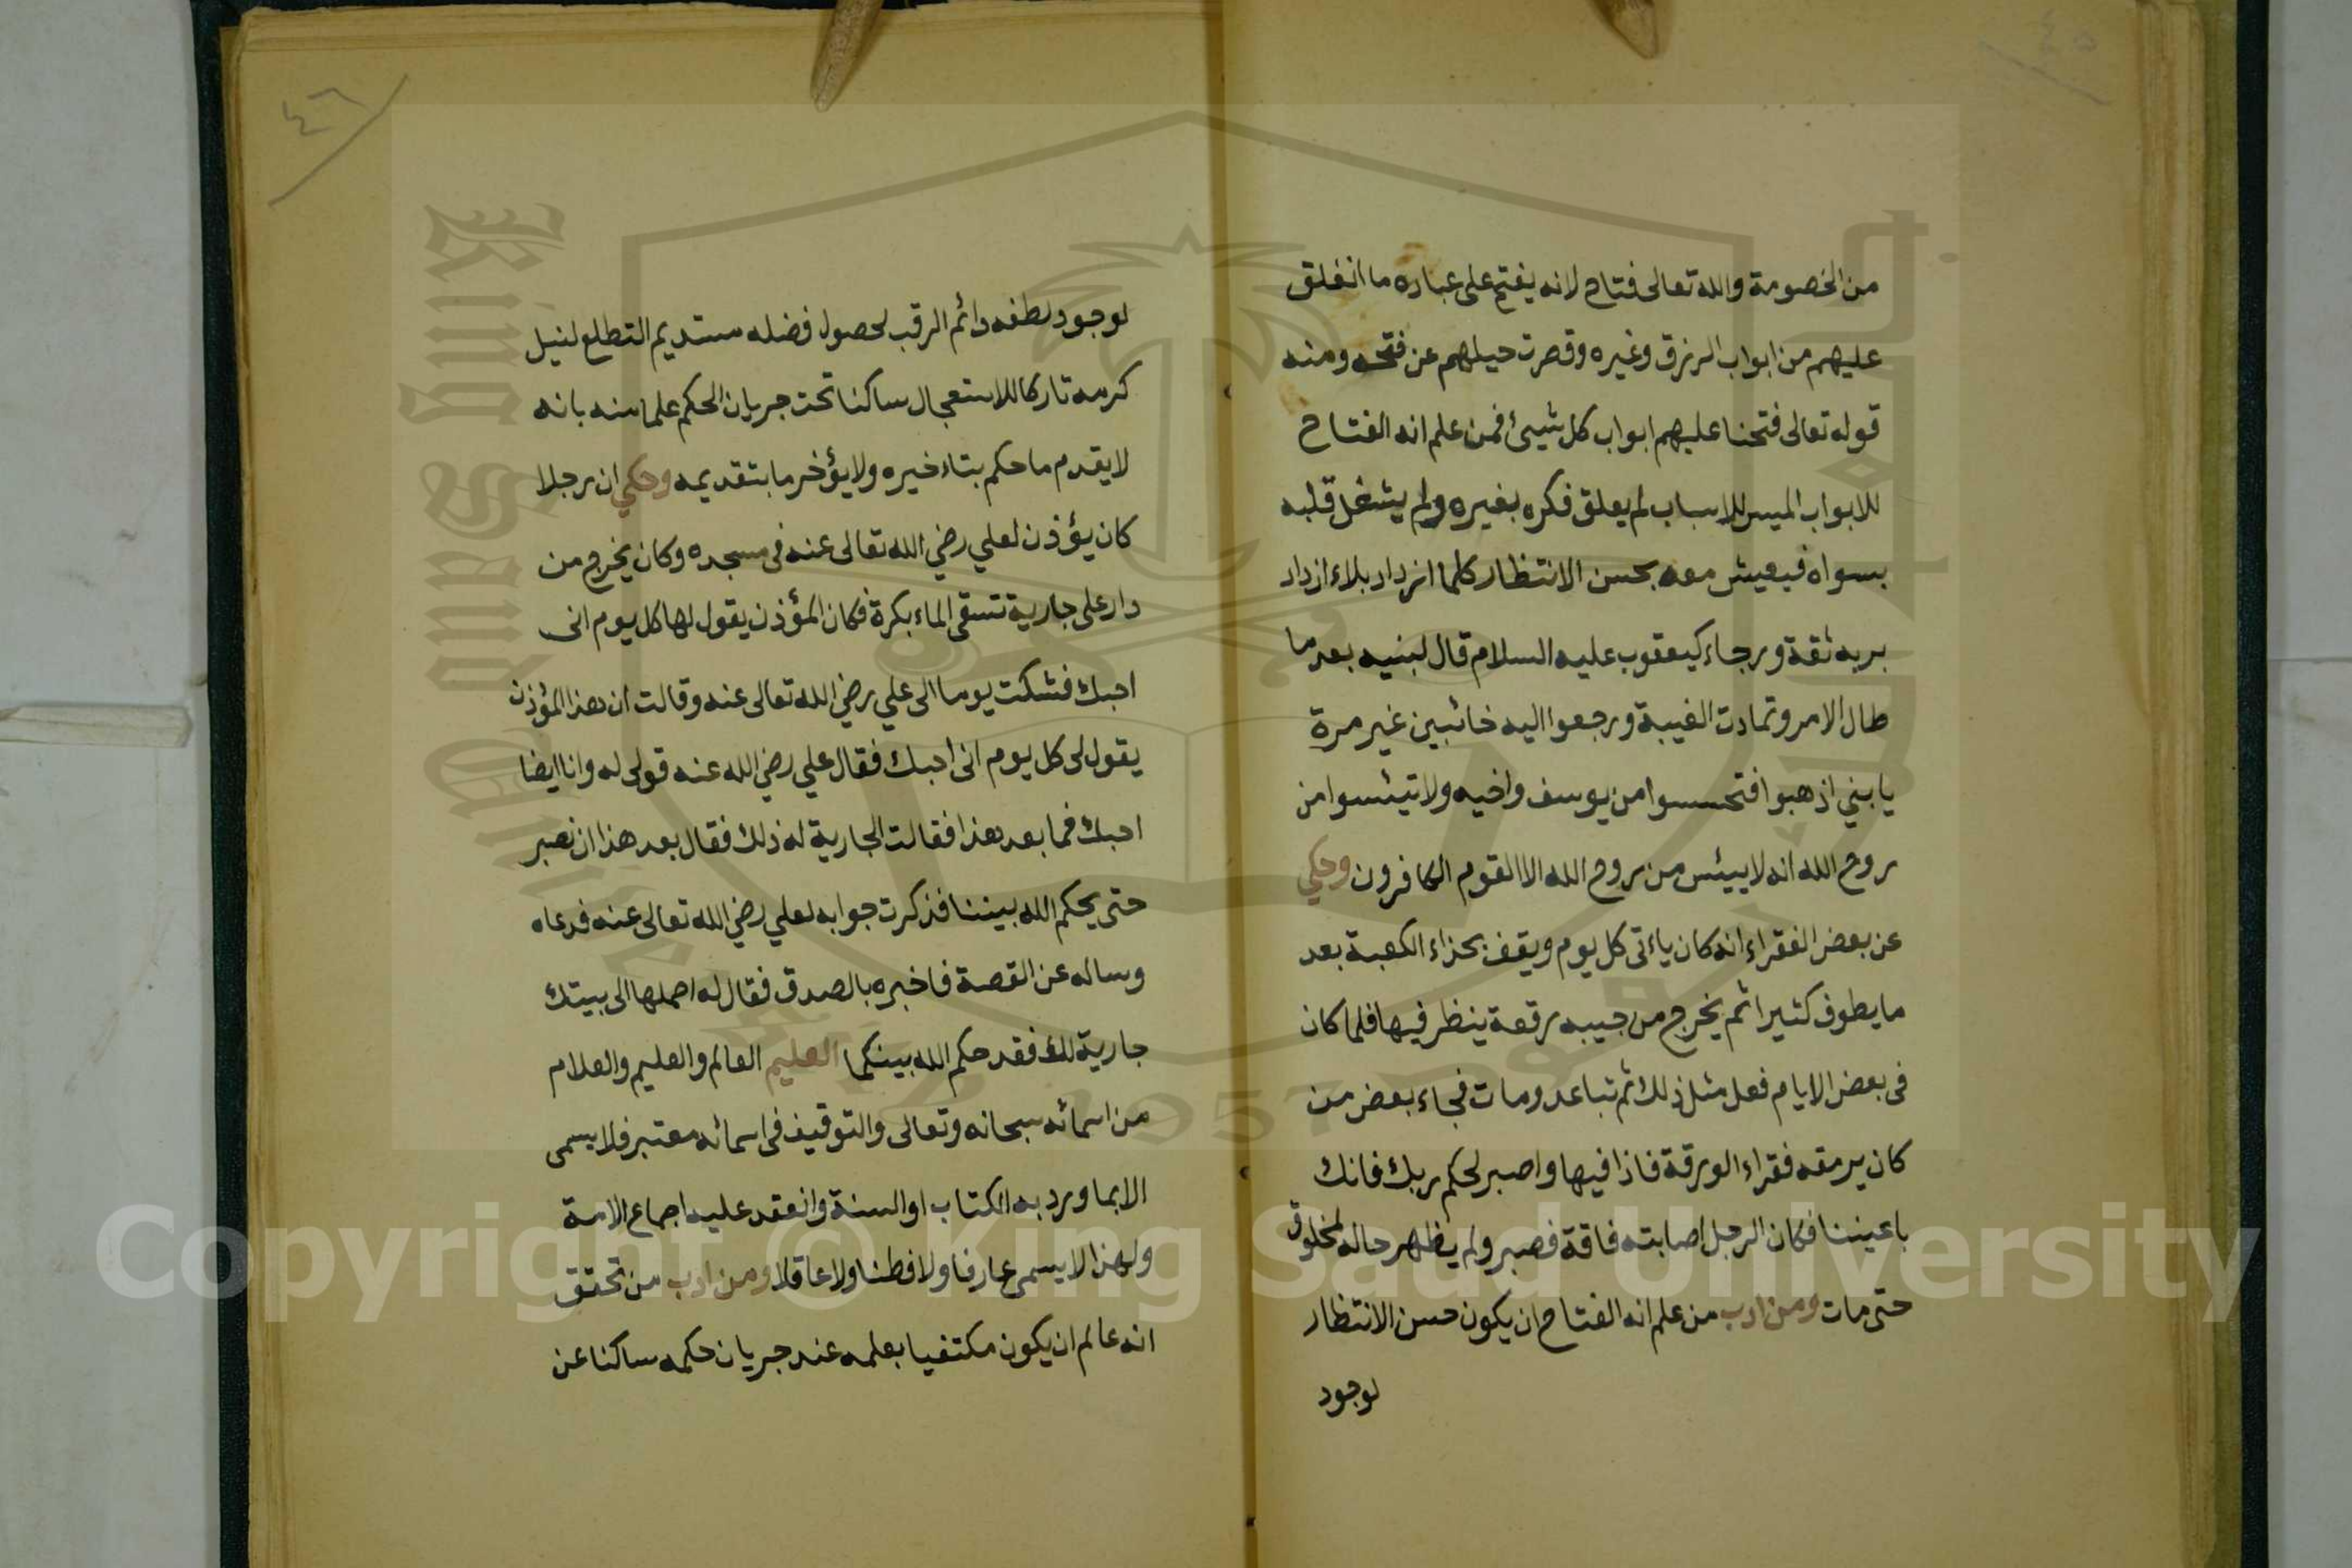 ٤٥
من الخصومة والله تعالى فتاح لانه يفتح على عباده ما انغلق
عليهم من ابواب الرزق وغيره وقصرت حيلهم عن فتحه ومنه
قوله تعالى فتحنا عليهم ابواب كل شيئ فمن علم انه الفتاح
للابواب الميسر للاسباب لم يعلق فكره بغيره ولم يشغل قلبه
بسواه فيعيش معه بحسن الانتظار كلما ازداد بلاء ازداد
بربه ثقة ورجاء كيعقوب عليه السلام قال لبنيه بعد ما
طال الامر وتمادت الغيبة ورجعوا اليه خائبين غير مرة
يا بني اذهبوا فتحسسوا من يوسف واخيه ولا تيئسوا من
روح الله انه لا ييئس من روح الله الا القوم الكافرون وحكي
عن بعض الفقراء انه كان ياءتى كل يوم ويقف بحذاء الكعبة بعد
ما يطوف كثيرا ثم يخرج من جيبه رقعة ينظر فيها فلما كان
فى بعض الايام فعل مثل ذلك ثم تباعد ومات فجاء بعض من
كان يرمقه فقراء الورقة فاذا فيها واصبر لحكم ربك فانك
باعيننا فكان الرجل اصابته فاقة فصبر ولم يظهر حاله لمخلوق
حتى مات ومن ادب من علم انه الفتاح ان يكون حسن الانتظار
لوجود
٤٦
لوجود لطفه دائم الرقب لحصول فضله مستديم التطلع لنيل
كرمه تاركا للاستعجال ساكنا تحت جريان الحكم علما منه بانه
لا يقدم ما حكم بتاءخيره ولا يؤخر ما بتقديمه وحكي ان رجلا
كان يؤذن لعلي رضي الله تعالى عنه فى مسجده وكان يخرج من
دار على جارية تستقى الماء بكرة فكان المؤذن يقول لها كل يوم انى
احبك فشكت يوما الى علي رضي الله تعالى عنه وقالت ان هذا المؤذن
يقول لى كل يوم انى احبك فقال علي رضي الله عنه قولى له وانا ايضا
احبك فما بعد هذا فقالت الجارية له ذلك فقال بعد هذا ان نصبر
حتى يحكم الله بيننا فذكرت جوابه لعلي رضي الله تعالى عنه فدعاه
وساله عن القصة فاخبره بالصدق فقال له احملها الى بيتك
جارية لك فقد حكم الله بينكما العليم العالم والعليم والعلام
من اسمائه سبحانه وتعالى والتوقيف فى اسمائه معتبر فلا يسمى
الا بما ورد به الكتاب او السنة وانعقد عليه اجماع الامة
ولهذا لا يسمى عارفا ولا فطنا ولا عاقلا ومن ادب من تحقق
انه عالم ان يكون مكتفيا بعلمه عند جريان حكمه ساكنا عن
King Saud University
1957
Copyright © King Saud University